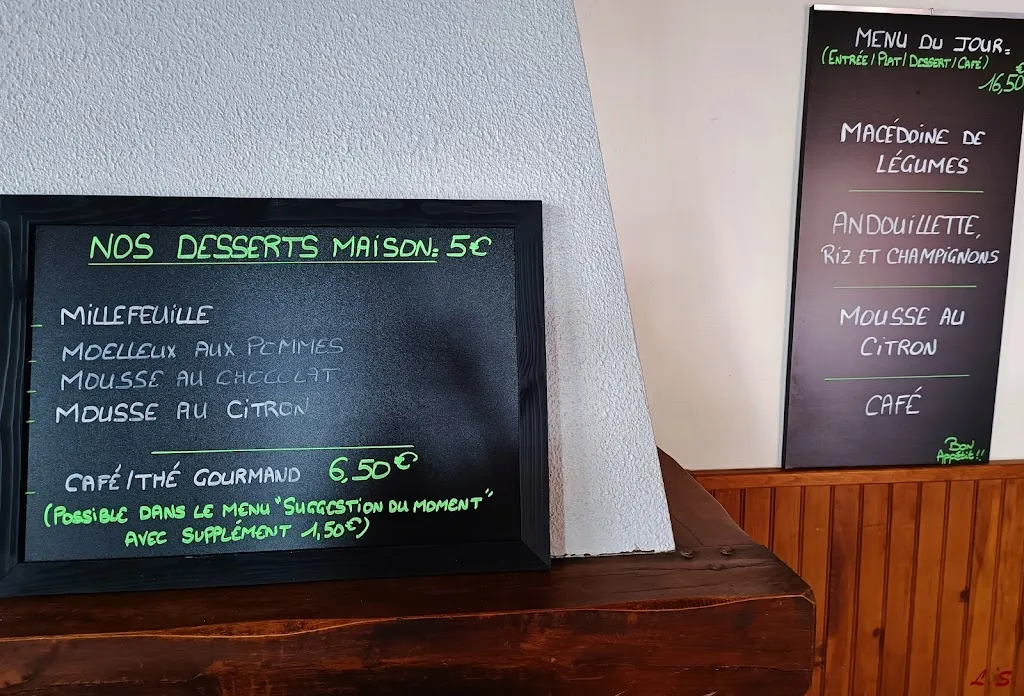 NOS DESSERTS MAISON: 5€
MILLEFEUILLE
MOELLEUX AUX POMMES
MOUSSE AU CHOCOLAT
MOUSSE AU CITRON
CAFÉ/THÉ GOURMAND 6,50€
(POSSIBLE DANS LE MENU "SUGGESTION DU MOMENT"
AVEC SUPPLÉMENT 1,50€)
MENU DU JOUR:
(ENTRÉE/PLAT/DESSERT/CAFÉ)
16,50€
MACÉDOINE DE
LÉGUMES
ANDOUILLETTE,
RIZ ET CHAMPIGNONS
MOUSSE AU
CITRON
CAFÉ
BON
APPÉTIT!!
L.S